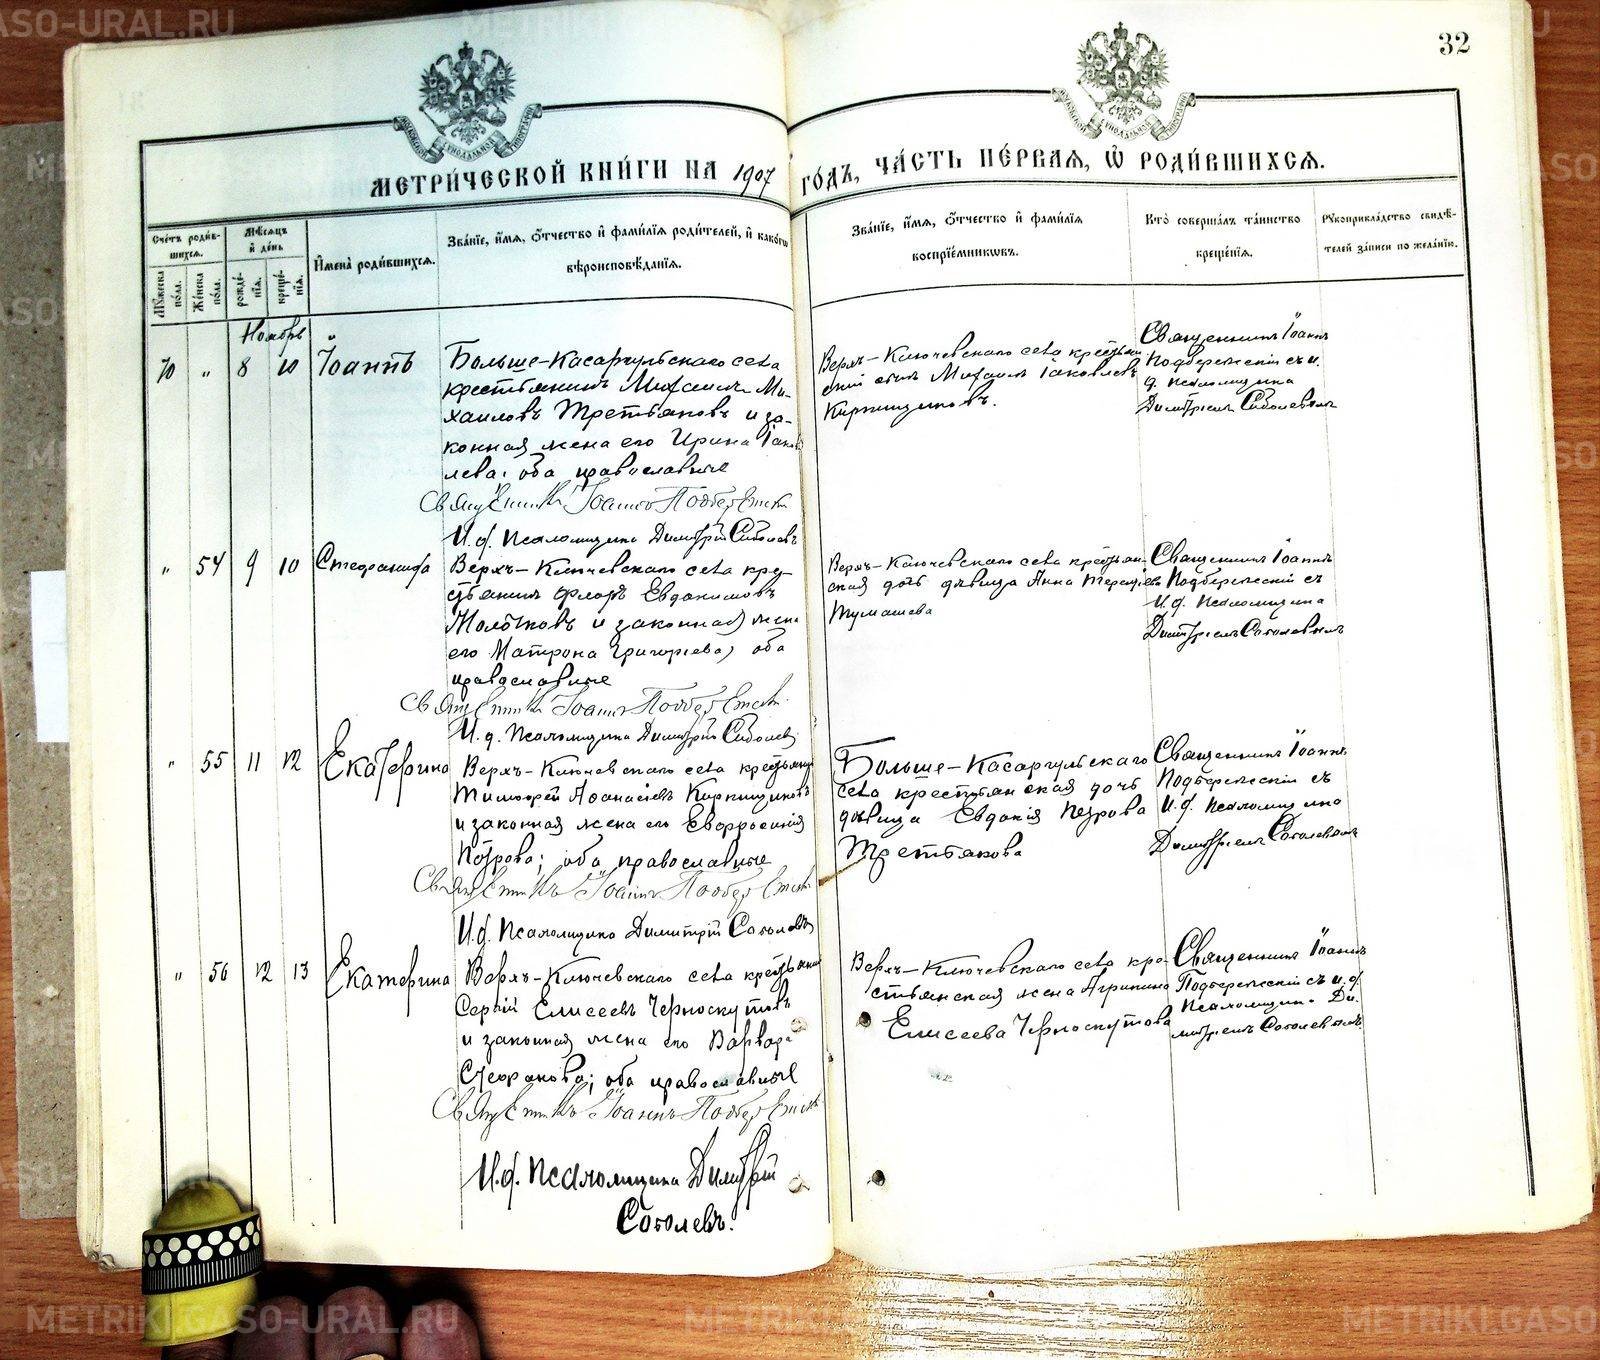 32
МЕТРИ́ЧЕСКОЙ КНИ́ГИ НА 1907 ГО́ДЪ, ЧА́СТЬ ПЕ́РВАЯ, Ѡ РОДИ́ВШИХСЯ.
Сче́тъ роди́вшихся.
Мѣ́сяцъ и де́нь
И҆мена̀ роди́вшихся.
Зва́нїе, и҆́мя, ѻ҆́тчество и҆ фами́лїя роди́телей, и҆ како́гѡ
вѣроисповѣ́данїя.
Зва́нїе, и҆́мя, ѻ҆́тчество и҆ фами́лїя
воспрїе́мникѡвъ.
Кто̀ соверша́лъ та́инство
креще́нїя.
Рꙋкоприкла́дство свидѣ́-
телей за́писи по жела́нїю.
Мꙋ́жеска по́ла.
Же́нска по́ла.
рожде́нїя.
креще́нїя.
Ноябрь
70 " 8 10 Іоаннъ
Больше-Касаргульскаго села
крестьянинъ Михаилъ Ми-
хаиловъ Третьяковъ и за-
конная жена его Ирина Іаков
лева; оба православные
Священникъ Іоаннъ Подбережскій
И.д. псаломщика Димитрій Соболевъ
Верхъ-Ключевскаго села крестьян
скій сынъ Михаилъ Іаковлевъ
Кирпищиковъ.
Священникъ Іоаннъ
Подбережскій съ и.
д. псаломщика
Димитріемъ Соболевымъ
" 54 9 10 Стефанида
Верхъ-Ключевскаго села кре-
стьянинъ Флоръ Евдокимовъ
Молотковъ и законная жена
его Матрона Григорьева; оба
православные
Священникъ Іоаннъ Подбережскій
И.д. Псаломщика Димитрій Соболевъ
Верхъ-Ключевскаго села крестьян-
ская дочь дѣвица Анна
Тумашева
Священникъ Іоаннъ
Подбережскій съ
И.д. Псаломщика
Димитріемъ Соболевымъ
" 55 11 12 Екатерина
Верхъ-Ключевскаго села крестьянинъ
Тимофей Афанасіевъ Кирпищиковъ
и законная жена его Евфросинія
Петрова; оба православные
Священникъ Іоаннъ Подбережскій
И.д. Псаломщика Димитрій Соболевъ
Больше-Касаргульскаго
села крестьянская дочь
дѣвица Евдокія Петрова
Третьякова
Священникъ Іоаннъ
Подбережскій съ
И.д. Псаломщика
Димитріемъ Соболевымъ
" 56 12 13 Екатерина
Верхъ-Ключевскаго села крестьянинъ
Сергій Елисеевъ Черноскутовъ
и законная жена его Варвара
Стефанова; оба православные
Священникъ Іоаннъ Подбережскій
И.д. Псаломщика Димитрій
Соболевъ.
Верхъ-Ключевскаго села кре-
стьянская жена Агрипина
Елисеева Черноскутова
Священникъ Іоаннъ
Подбережскій съ и.д.
Псаломщика Ди-
митріемъ Соболевымъ
METRIKI.GASO-URAL.RU